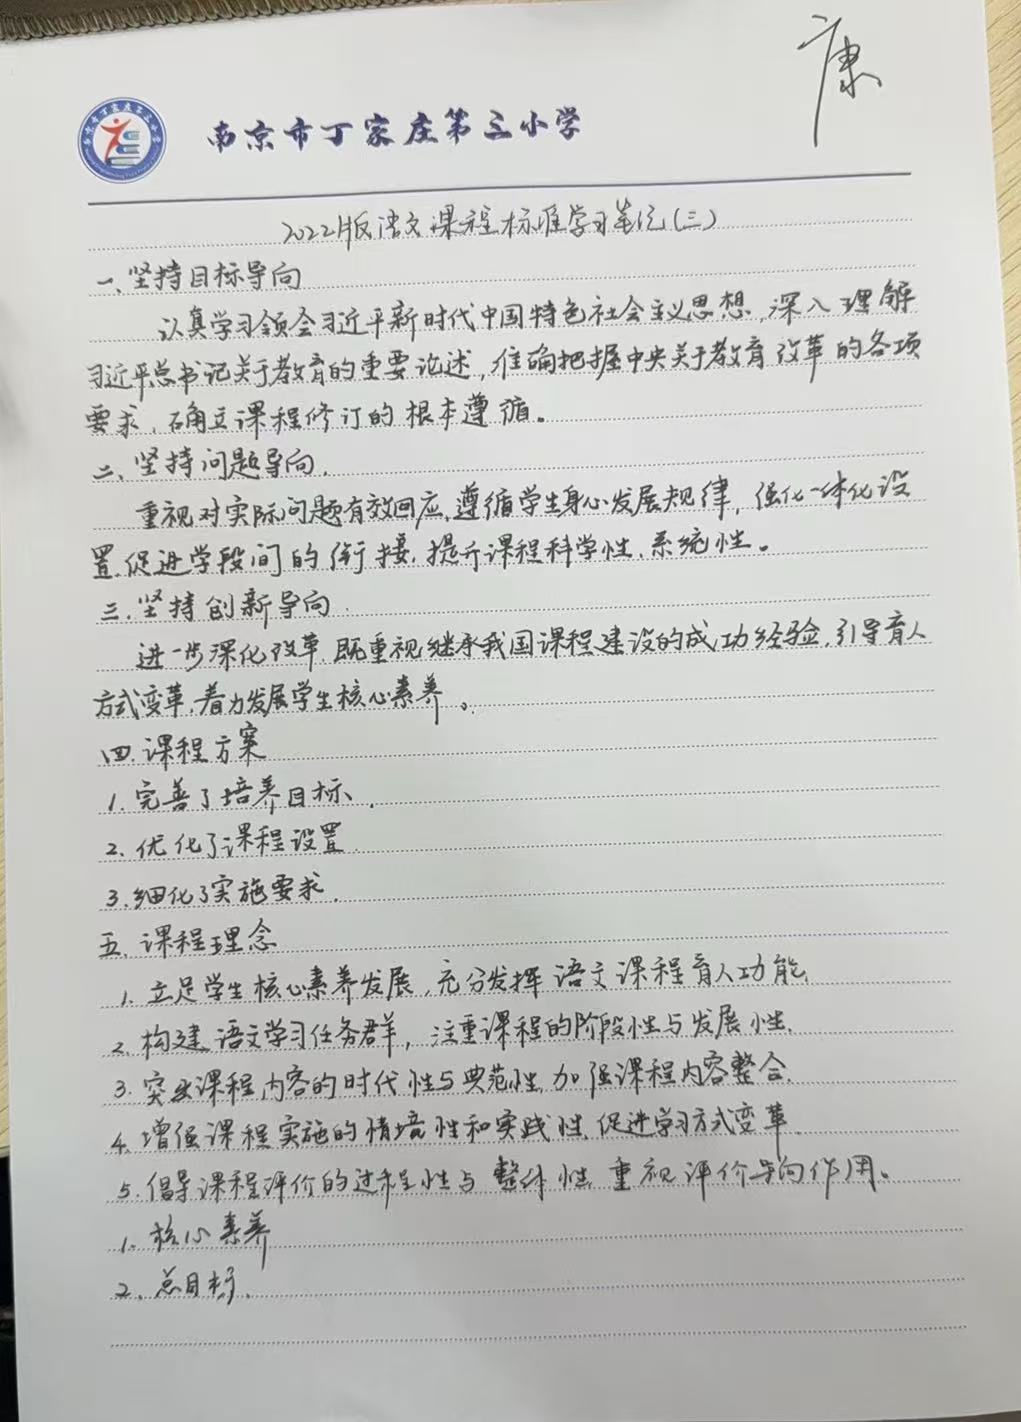 康
南京市丁家庄第三小学
2022版语文课程标准学习笔记(三)
一、坚持目标导向
认真学习领会习近平新时代中国特色社会主义思想,深入理解
习近平总书记关于教育的重要论述,准确把握中央关于教育改革的各项
要求,确立课程修订的根本遵循。
二、坚持问题导向.
重视对实际问题有效回应,遵循学生身心发展规律,强化一体化设
置,促进学段间的衔接,提升课程科学性、系统性。
三、坚持创新导向.
进一步深化改革,既重视继承我国课程建设的成功经验,引导育人
方式变革,着力发展学生核心素养。
四.课程方案
1.完善了培养目标.
2.优化了课程设置
3.细化了实施要求.
五.课程理念
1.立足学生核心素养发展,充分发挥语文课程育人功能,
2.构建语文学习任务群,注重课程的阶段性与发展性.
3.突出课程内容的时代性与典范性,加强课程内容整合.
4.增强课程实施的情境性和实践性,促进学习方式变革.
5.倡导课程评价的过程性与整体性,重视评价导向作用。
1.核心素养
2.总目标.